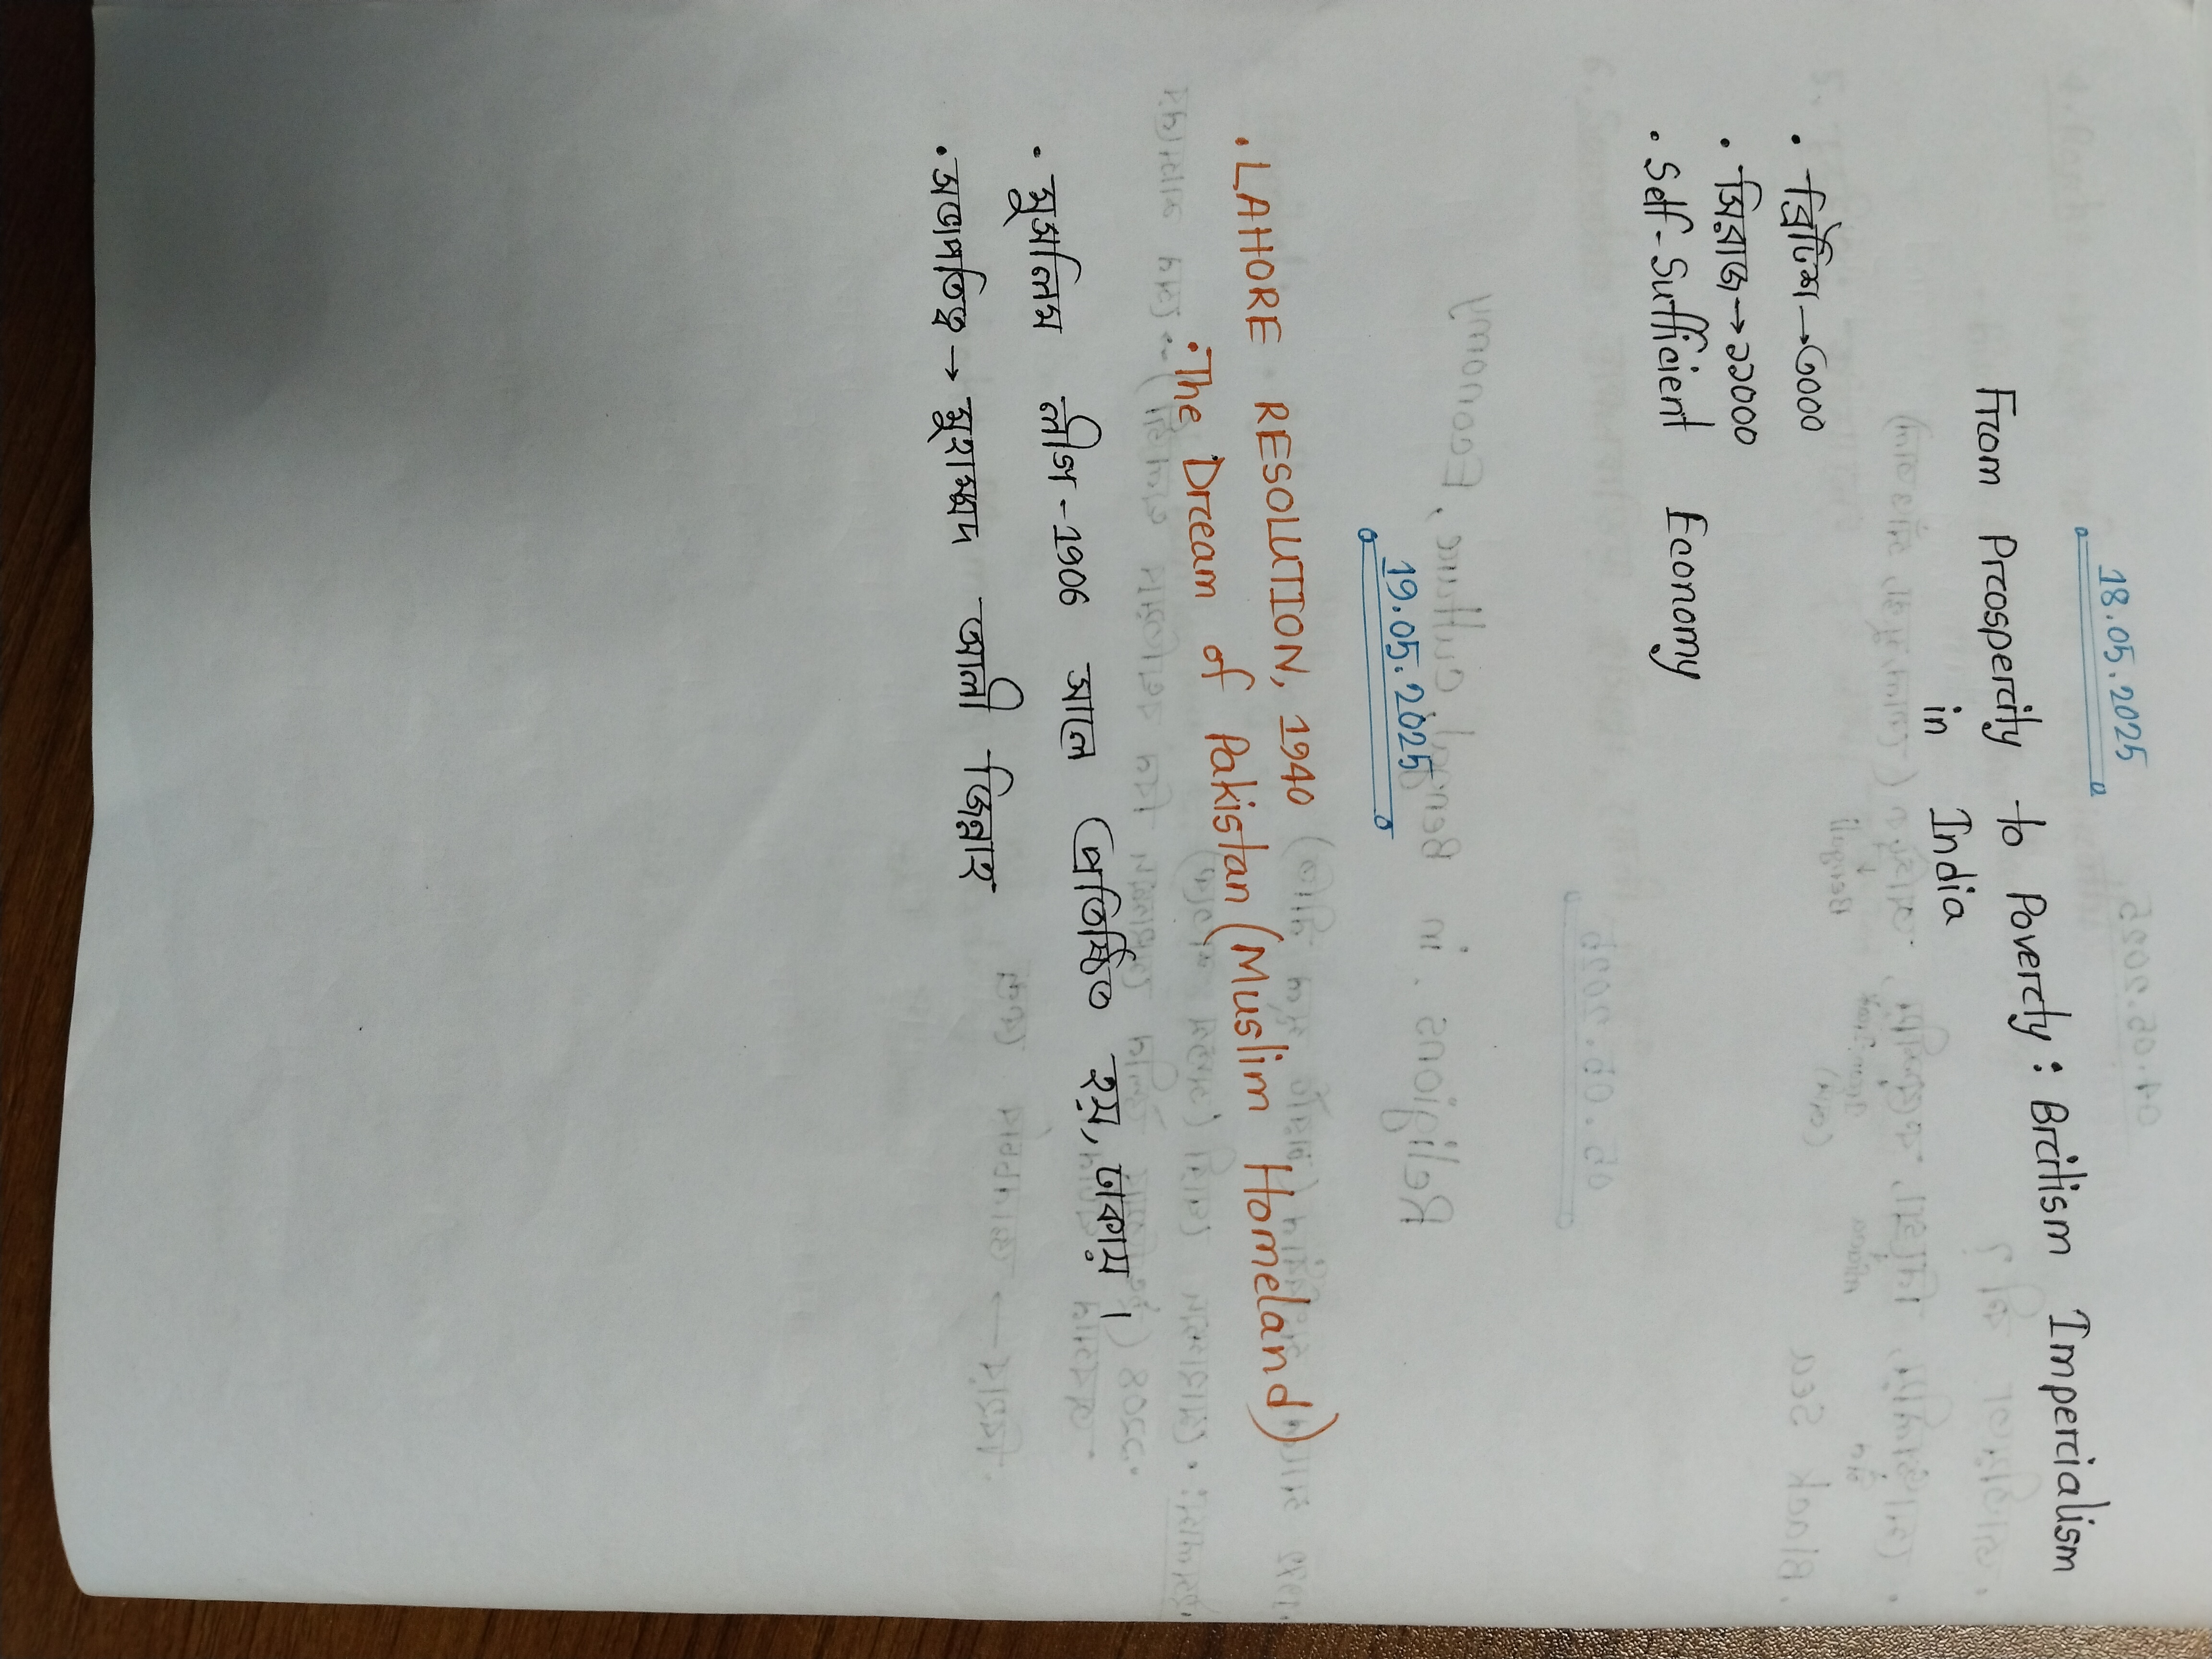 18.05.2025
From Prosperity to Poverty: Britism Imperialism
in India
• ব্রিটিশ → ৩০০০
• সিরাজ → ১১০০০
• Self-Sufficient Economy
19.05.2025
• LAHORE RESOLUTION, 1940
• The Dream of Pakistan (Muslim Homeland)
• মুসলিম লীগ - 1906 সালে প্রতিষ্ঠিত হয়, ঢাকায়।
• সভাপতিত্ব → মুহাম্মদ আলী জিন্নাহ